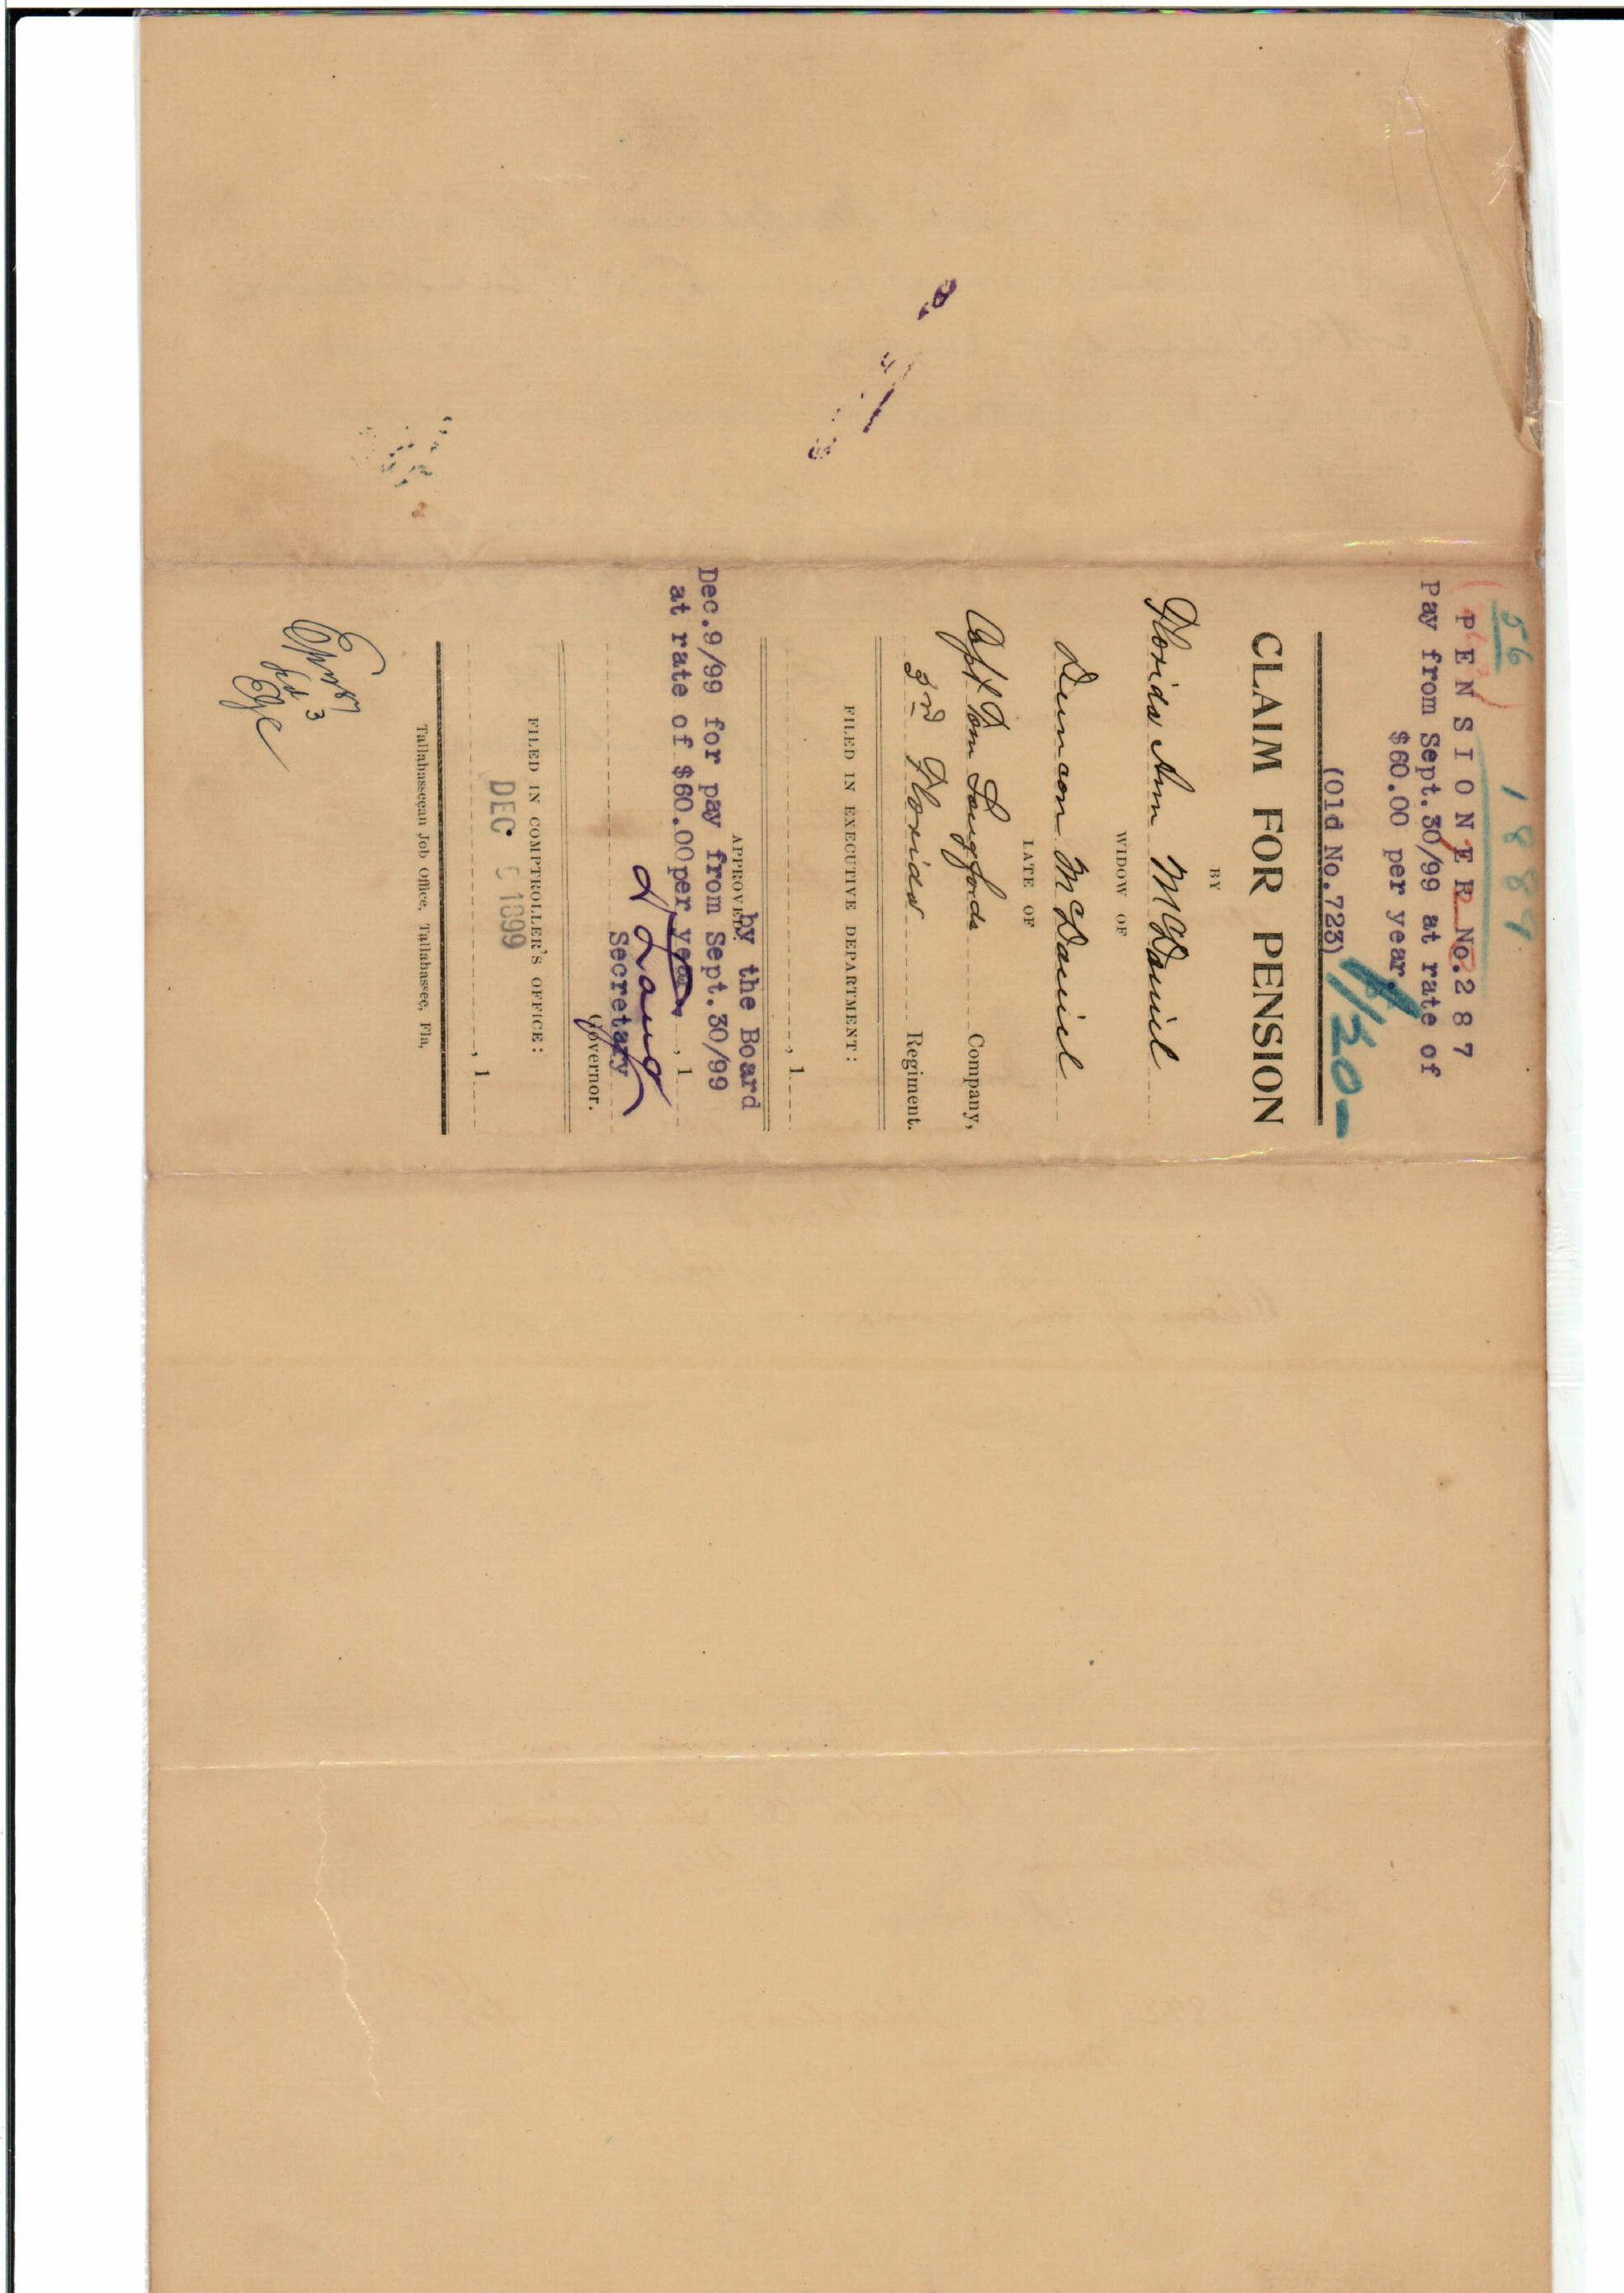 56 1887
PENSIONER No. 287
Pay from Sept. 30/99 at rate of
$60.00 per year.
(Old No. 723) 120—
CLAIM FOR PENSION
BY
Florida Ann McDaniel
WIDOW OF
Duncan McDaniel
LATE OF
Capt Tom Langfords Company,
3rd Florida Regiment.
FILED IN EXECUTIVE DEPARTMENT:
, 1
APPROVED by the Board
Dec. 9/99 for pay from Sept. 30/99
at rate of $60.00 per year. , 1
L Lang
Secretary Governor.
FILED IN COMPTROLLER'S OFFICE:
DEC 5 1899
, 1
Tallahasseean Job Office, Tallahassee, Fla.